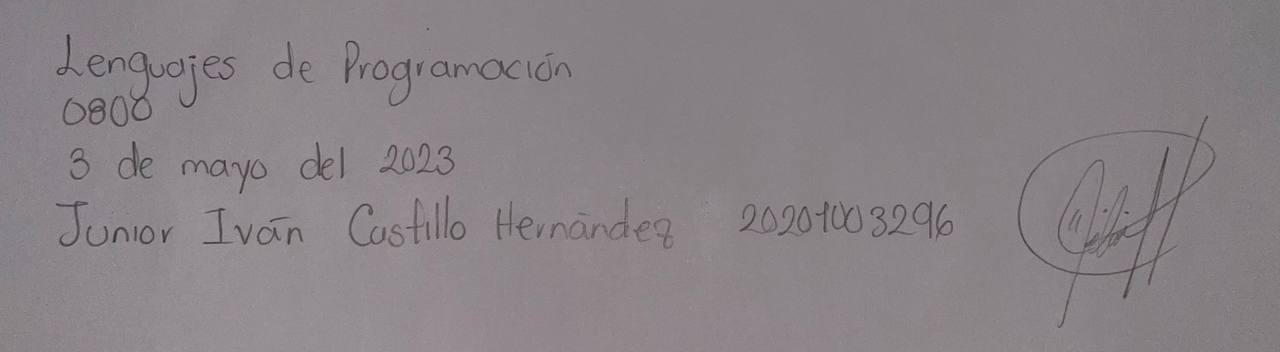 Lenguajes de Programación
0800
3 de mayo del 2023
Junior Iván Castillo Hernández 20201003296